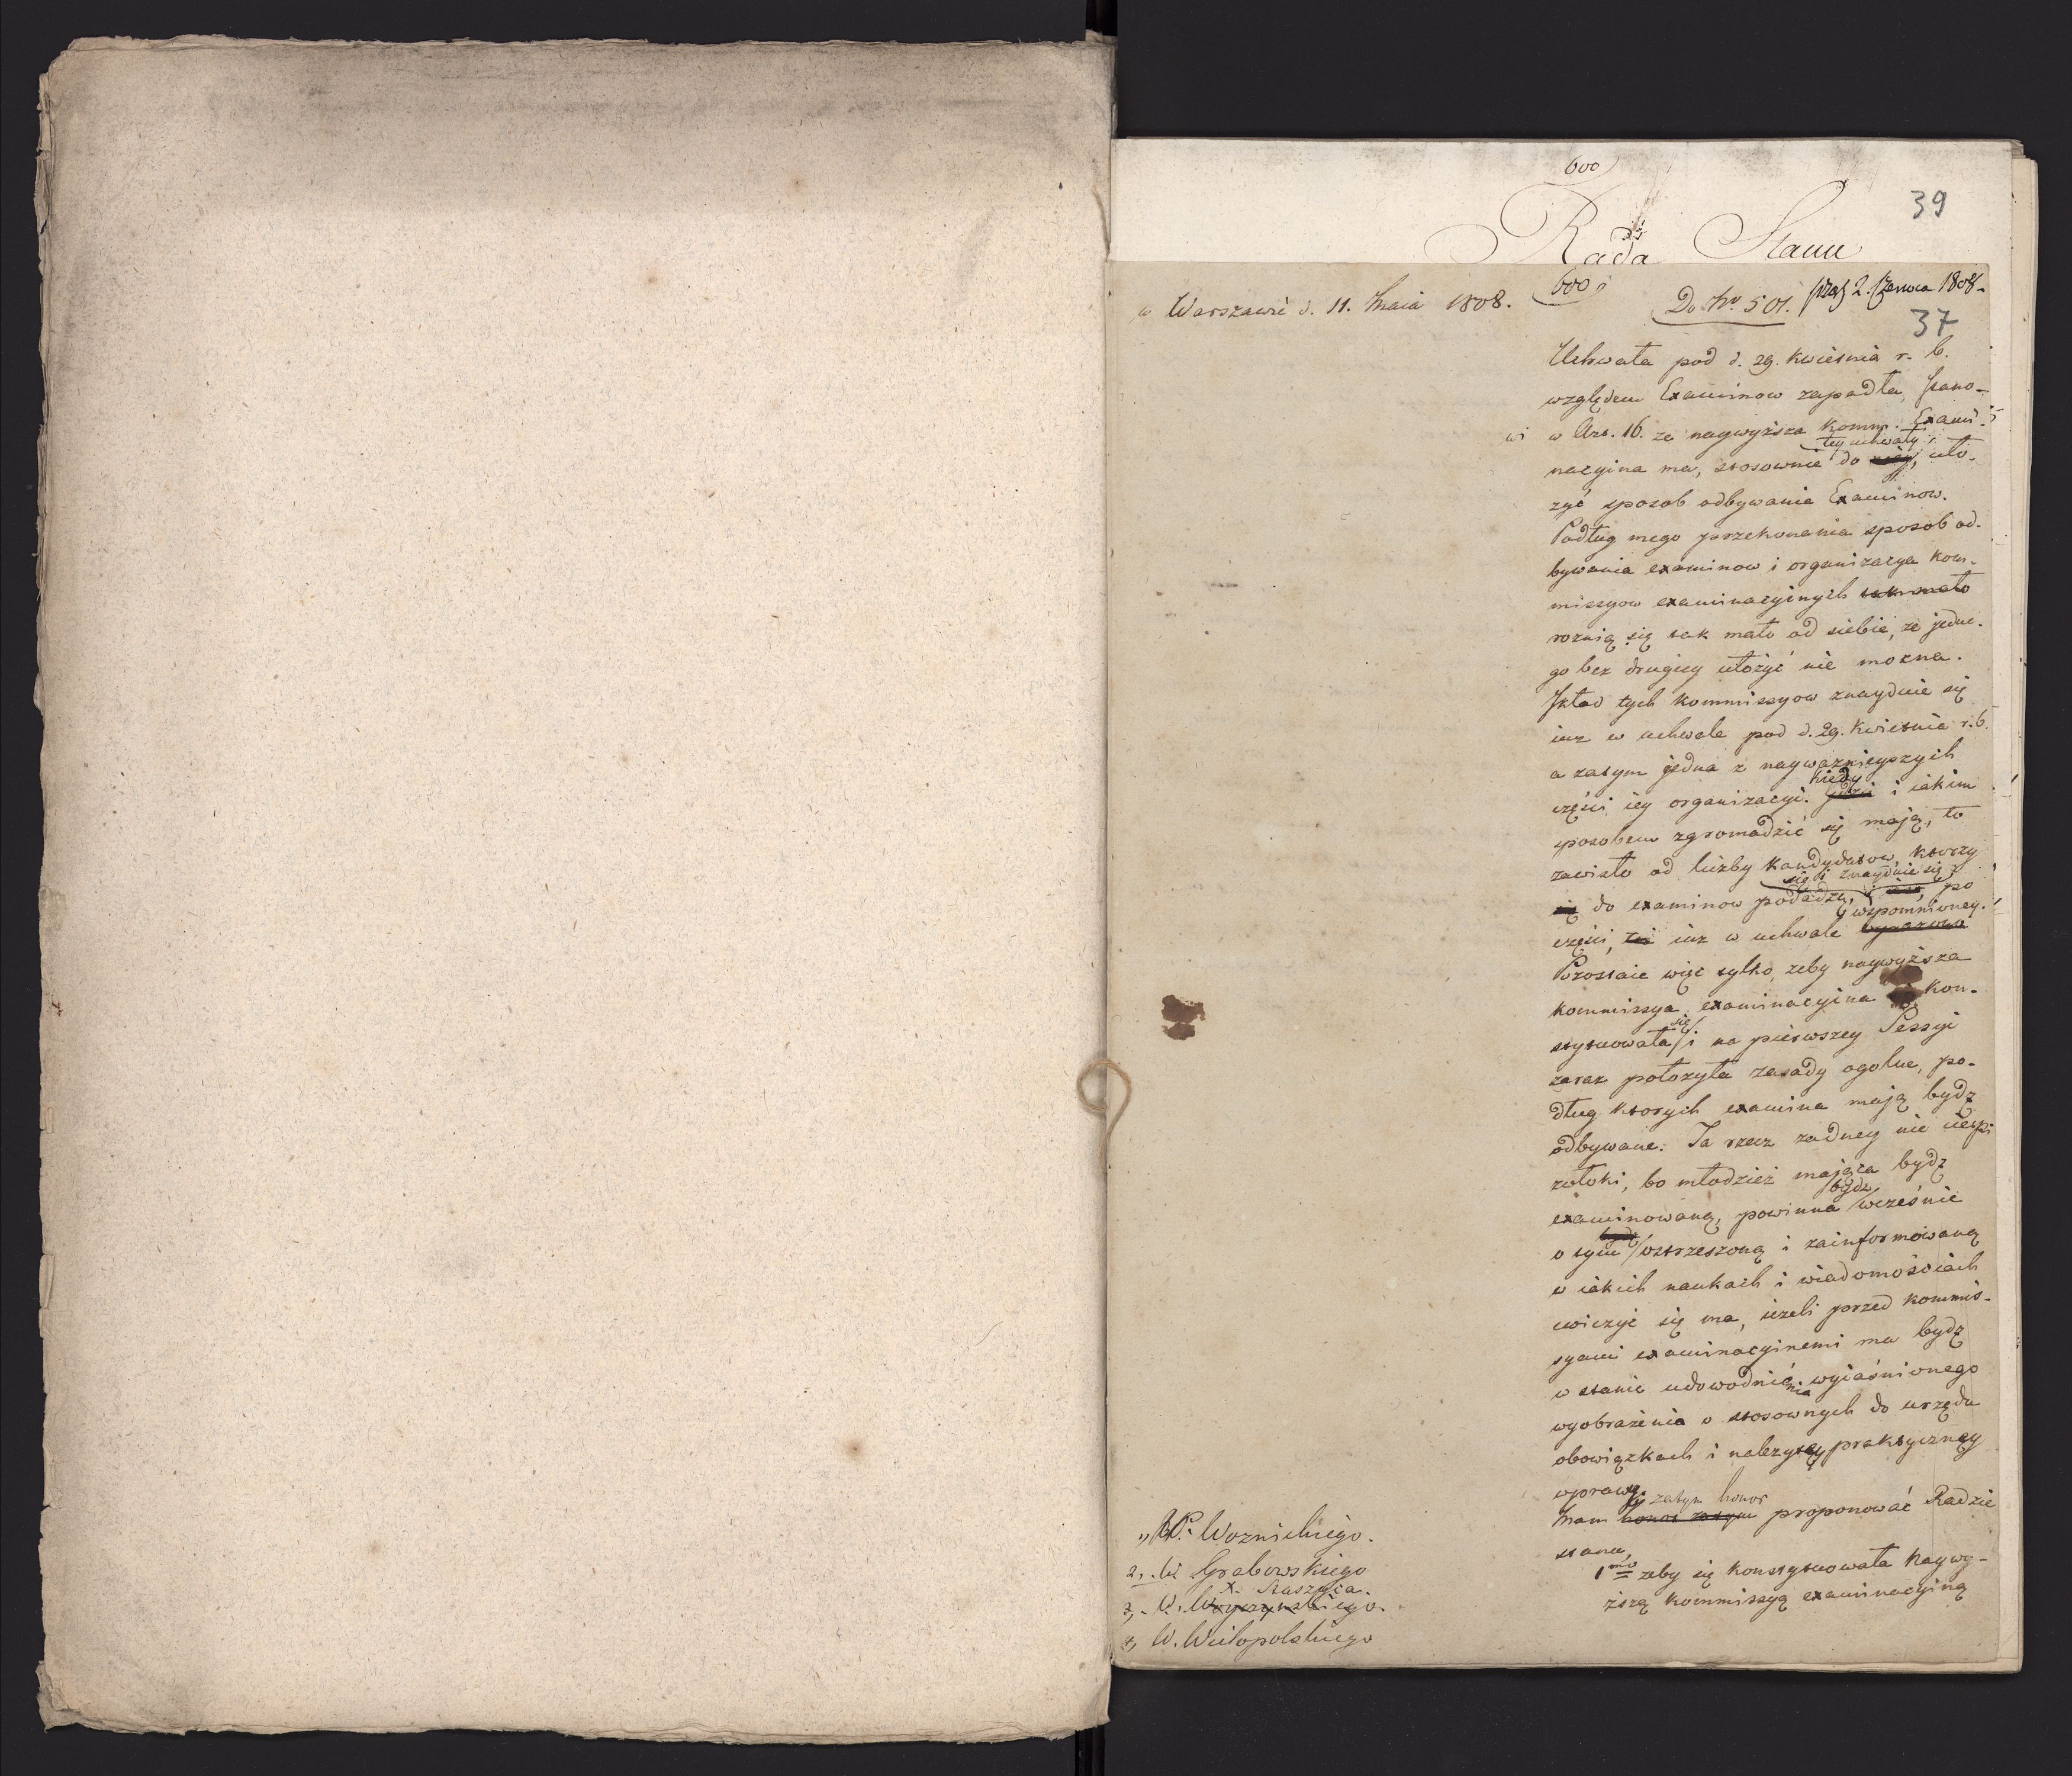 600
39
Rada Stanu
w Warszawie d. 11. Maia 1808.
600
Do Nro 501. 2. Czerwca 1808.
37
Uchwała pod d. 29. Kwietnia r. b.
względem Examinow zapadła, stano-
wi w Art. 16. ze naywyższa Komm. Exami-
nacyina ma, stosownie do tey uchwały, uło-
żyć sposob odbywania Examinow.
Podług mego przekonania sposob od-
bywania examinow i organizacya kom-
missyow examinacyinych tak mało
roznią się tak mało od siebie, że jedne-
go bez drugiey ułożyć nie mozna.
Skład tych kommissyow znayduie się
iuz w uchwale pod d. 29. Kwietnia r. b.
a zatym jedna z nayważnieyszych
części iey organizacyi. Kiedy i iakim
sposobem zgromadzić się mają, to
zawisło od liczby kandydatow, ktorzy
się do examinow podadzą, i znayduie się po
części, iuz w uchwale wspomnioney.
Pozostaie więc tylko, zeby naywyższa
kommissya examinacyina kon-
stytuowała się i na pierwszey Sessyi
zaraz położyła zasady ogolne, po-
dług ktorych examina mają bydz
odbywane. Ta rzecz zadney nie cierpi
zwłoki, bo młodzież mająca bydz
examinowaną, powinna bydz wcześnie
o tym ostrzeszoną i zainformowaną
w iakich naukach i wiadomościach
cwiczyć się ma, ieżeli przed kommis-
syami examinacyinemi ma bydz
w stanie udowodnienia wyiaśnionego
wyobrażenia o stosownych do urzędu
obowiązkach i należytey praktyczney
wprawy.
Mam zatym honor proponować Radzie
stanu,
1mo zeby się konstytuowała Naywy-
zszą kommissyą examinacyiną
1, W. Woznickiego.
2, W. Grabowskiego
X. Staszyca.
3, W. Woyczynskiego.
4, W. Wielopolskiego